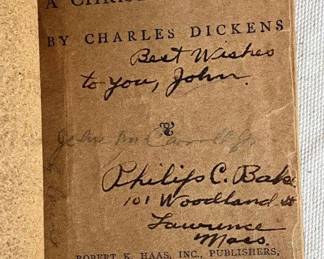 A CHRIS
BY CHARLES DICKENS
Best Wishes
to you, John.
John
Philip C. Bake
101 Woodland St
Lawrence
Mass.
ROBERT K. HAAS, INC., PUBLISHERS,